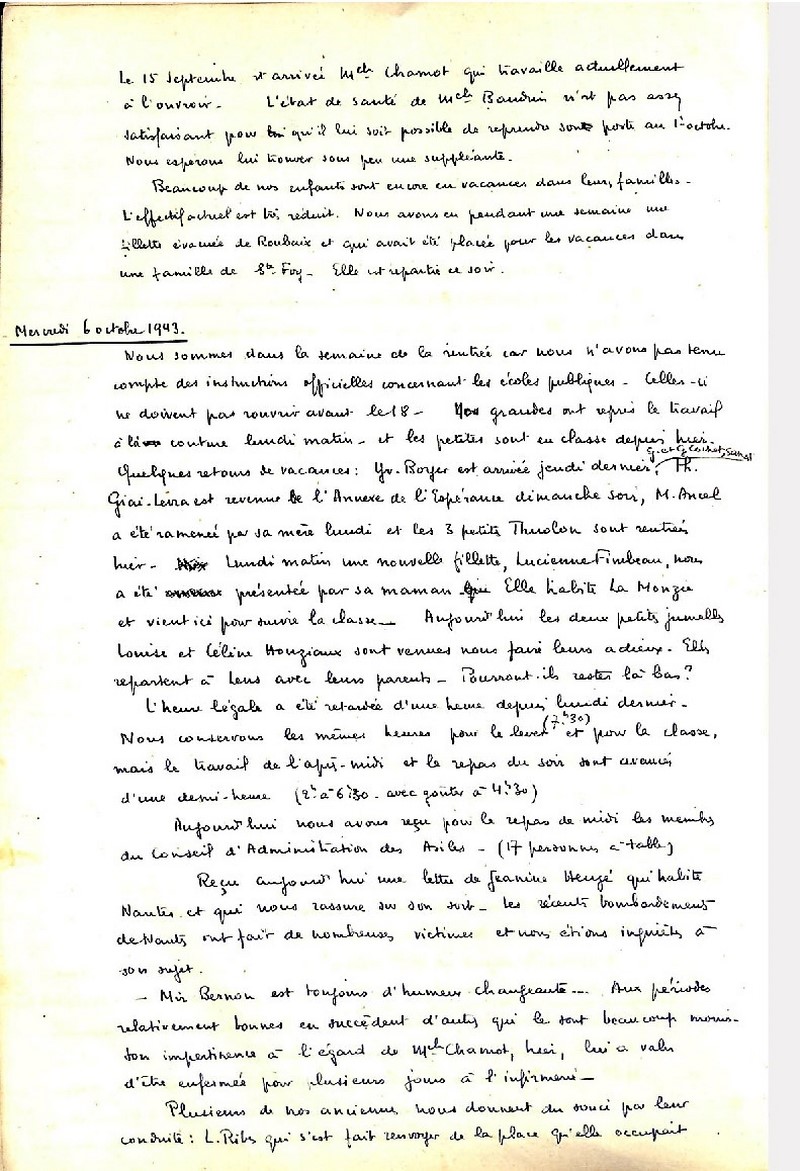 Le 15 Septembre est arrivée Melle Chamot qui travaille actuellement
à l'ouvroir - L'état de santé de Melle Baudrin n'est pas assez
satisfaisant pour qu'il lui soit possible de reprendre son poste au 1er octobre.
Nous espérons lui trouver sous peu une suppléante.
Beaucoup de nos enfants sont encore en vacances dans leurs familles -
L'effectif actuel est très réduit. Nous avons eu pendant une semaine une
fillette évacuée de Roubaix et qui avait été placée pour les vacances dans
une famille de Ste Foy - Elle est repartie ce soir.
Mercredi 6 octobre 1943.
Nous sommes dans la semaine de la rentrée car nous n'avons pas tenu
compte des instructions officielles concernant les écoles publiques - Celles-ci
ne doivent pas rouvrir avant le 18 - Nos grandes ont repris le travail
à la couture lundi matin - et les petites sont en classe depuis hier.
Quelques retours de vacances : Yv. Boyer est arrivée jeudi dernier, G. et G. Th.
Giai-Levra est revenue de l'Annexe de l'Espérance dimanche soir, M. Ancel
a été ramenée par sa mère lundi et les 3 petits Thuolon sont rentrés
hier - Lundi matin une nouvelle fillette, Lucienne Timbeau, nous
a été présentée par sa maman Elle habite La Monzie
et vient ici pour suivre la classe - Aujourd'hui les deux petites jumelles
Louise et Céline Houziaux sont venues nous faire leurs adieux - Elles
repartent à Lens avec leurs parents - Pourront-ils rester là bas ?
L'heure légale a été retardée d'une heure depuis lundi dernier -
Nous conservons les mêmes heures pour le lever (7h30) et pour la classe,
mais le travail de l'après-midi et le repas du soir sont avancés
d'une demi-heure (2h à 6h30 - avec goûter à 4h30)
Aujourd'hui nous avons reçu pour le repas de midi les membres
du Conseil d'Administration des Asiles - (17 personnes à table)
Reçu aujourd'hui une lettre de Jeanine Heuzé qui habite
Nantes et qui nous rassure sur son sort - Les récents bombardements
de Nantes ont fait de nombreuses victimes et nous étions inquiètes à
son sujet.
- Mir Bernon est toujours d'humeur changeante... Aux périodes
relativement bonnes en succèdent d'autres qui le sont beaucoup moins -
Son impertinence à l'égard de Melle Chamot, hier, lui a valu
d'être enfermée pour plusieurs jours à l'infirmerie -
Plusieurs de nos anciennes nous donnent du souci par leur
conduite : L. Ribes qui s'est fait renvoyer de la place qu'elle occupait